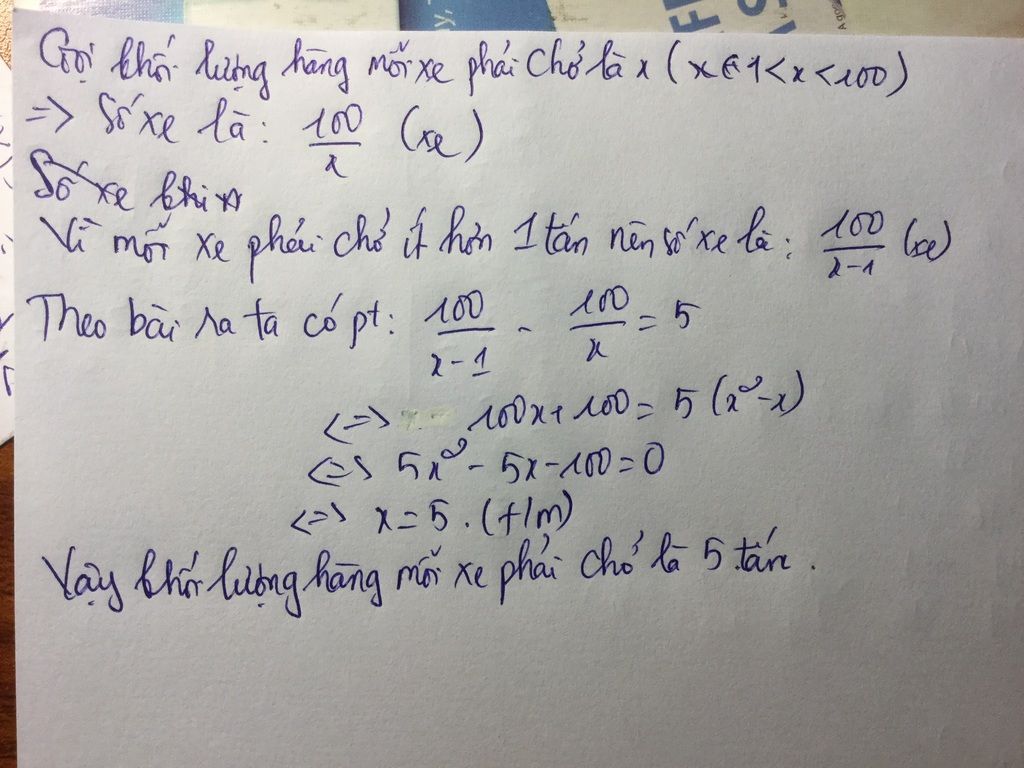 Gọi khối lượng hàng mỗi xe phải chở là x (x ∈ 1 < x < 100)
=> Số xe là: 100/x (xe)
Số xe khi
Vì mỗi xe phải chở ít hơn 1 tấn nên số xe là: 100/x-1 (xe)
Theo bài ra ta có pt: 100/x-1 - 100/x = 5
<=> 100x + 100 = 5 (x²-x)
<=> 5x² - 5x - 100 = 0
<=> x = 5. (t/m)
Vậy khối lượng hàng mỗi xe phải chở là 5 tấn.